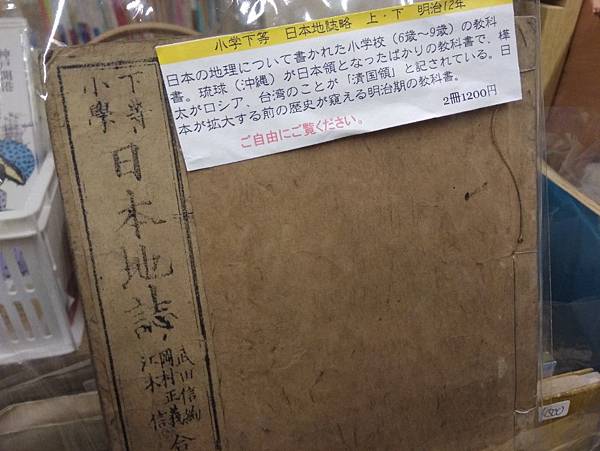 小学下等　日本地誌略　上・下　明治12年
日本の地理について書かれた小学校（6歳～9歳）の教科
書。琉球（沖縄）が日本領となったばかりの教科書で、樺
太がロシア、台湾のことが「清国領」と記されている。日
本が拡大する前の歴史が窺える明治期の教科書。
2冊1200円
ご自由にご覧ください。
下等
小學
日本地誌
岡村正義
合
神戸開港